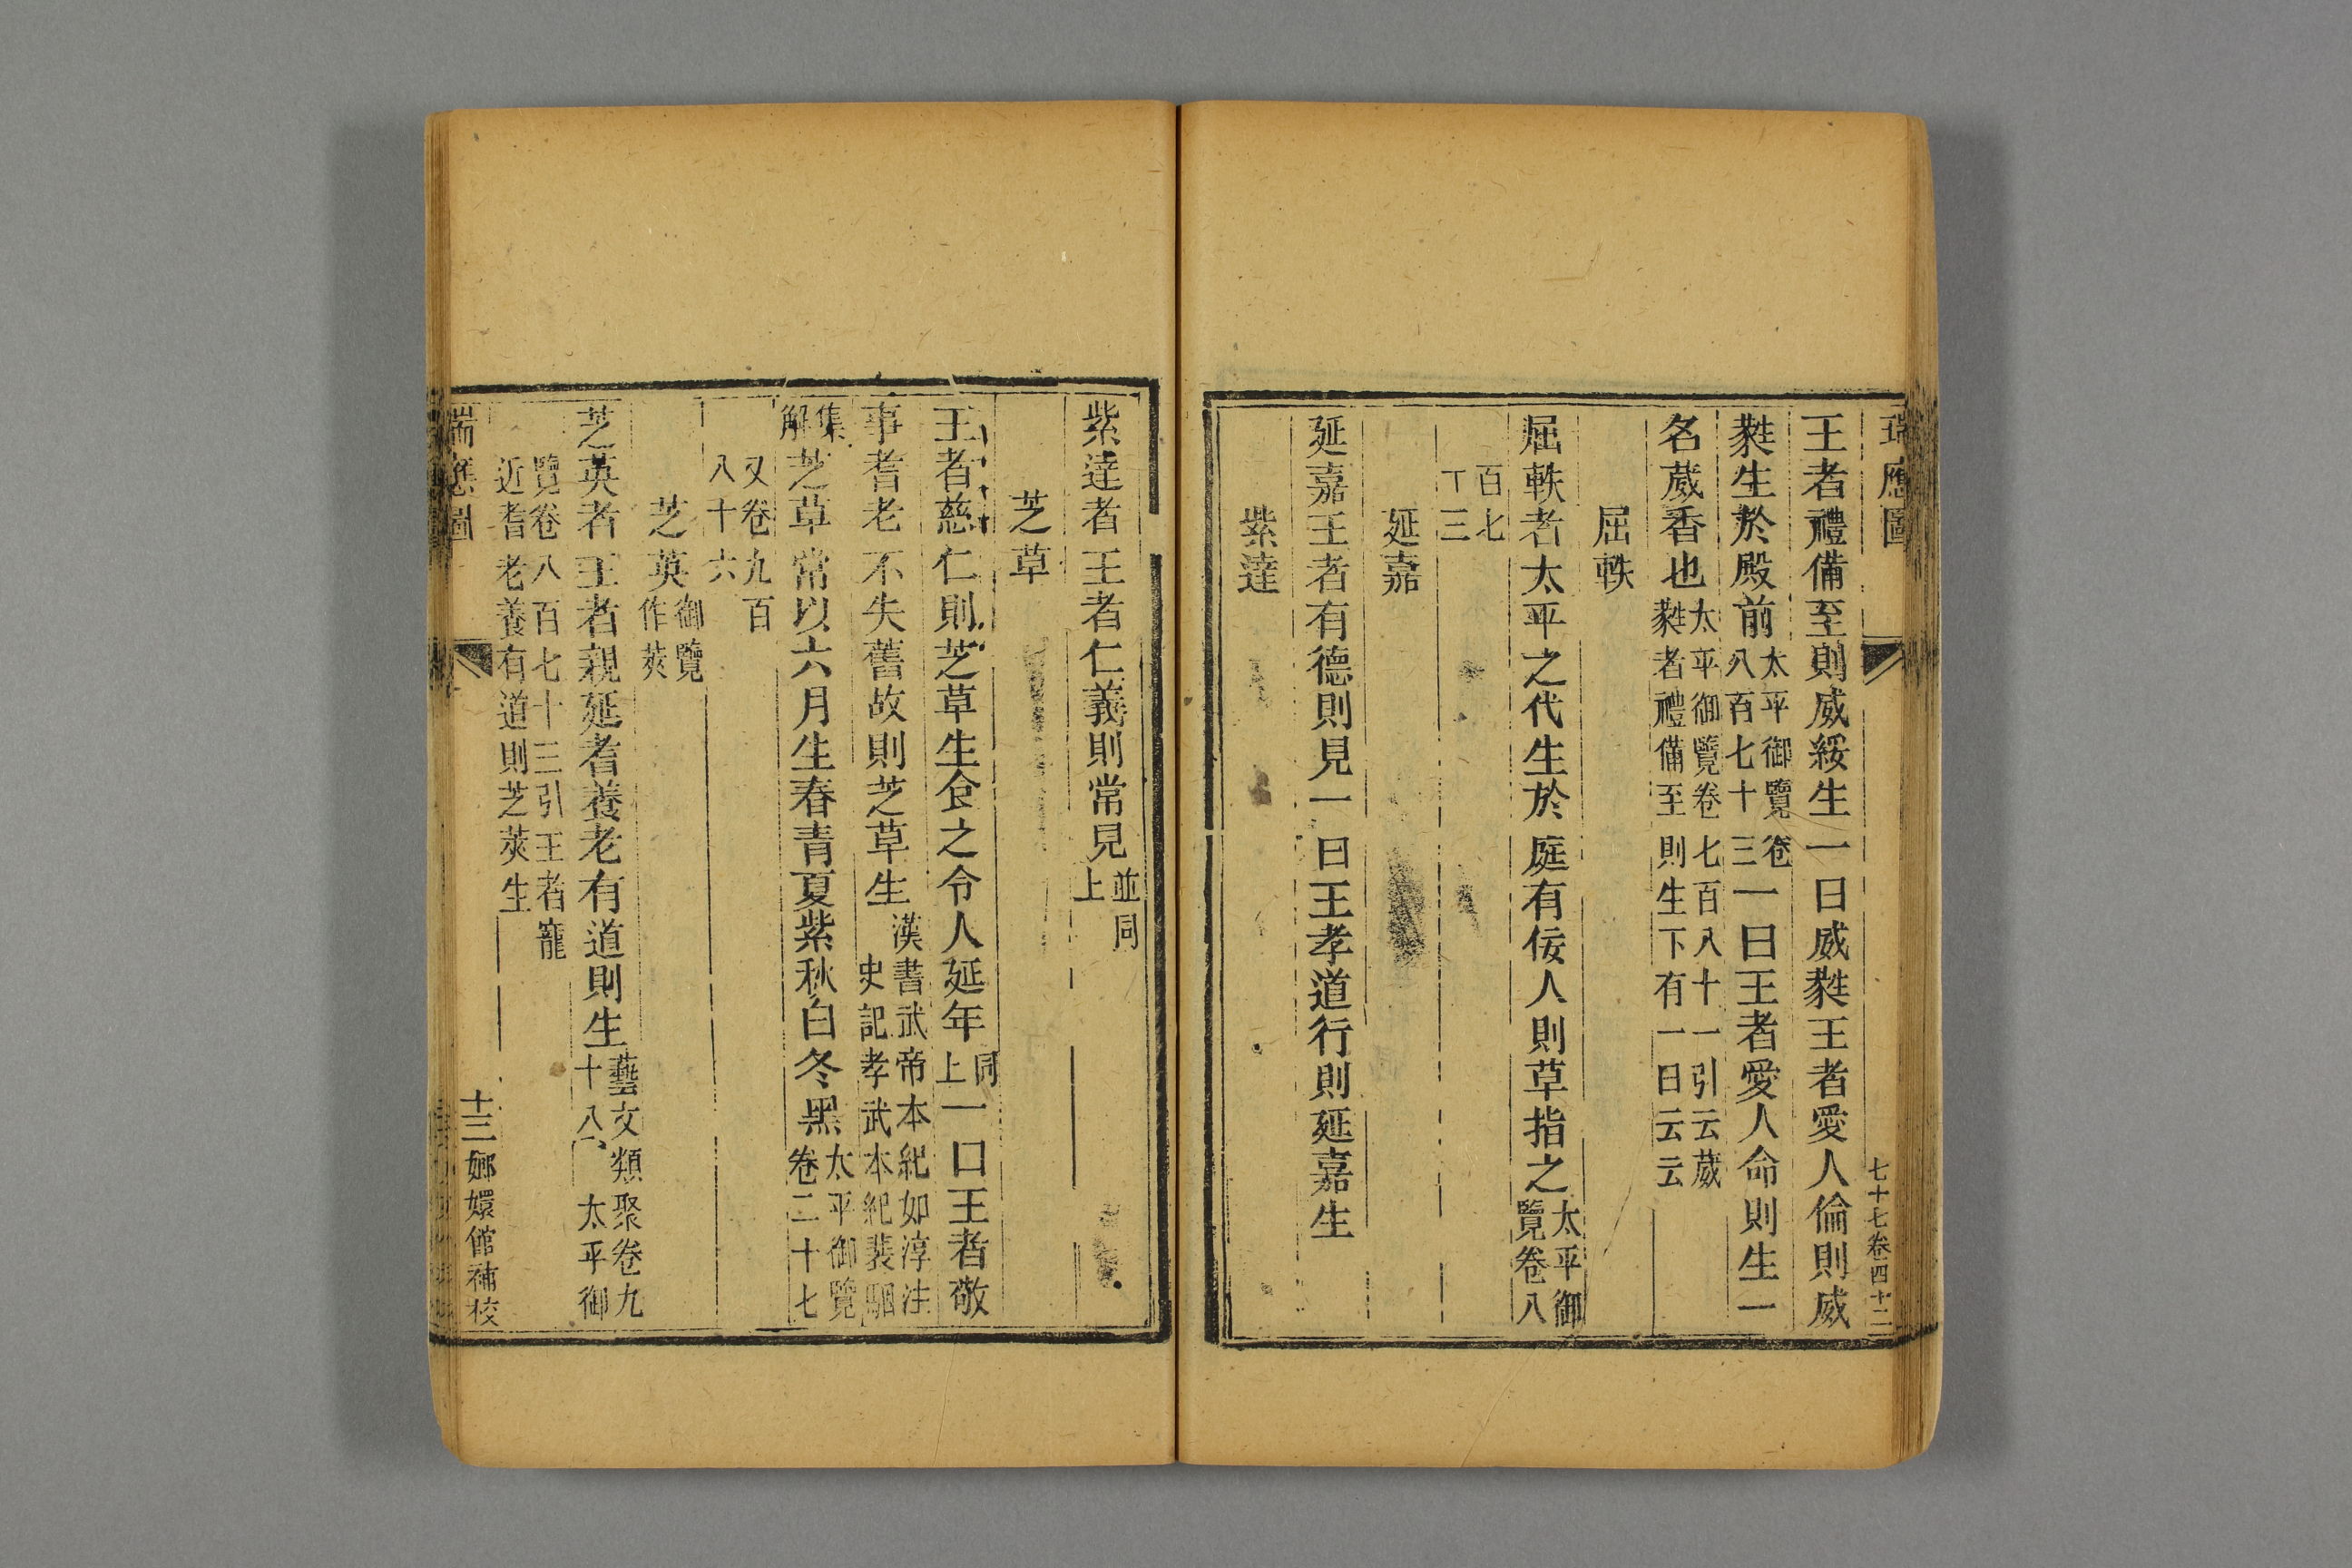 瑞應圖 七十七卷四十二
王者禮備至則威綏生一曰威蕤王者愛人倫則威
蕤生於殿前太平御覽卷八百七十三一曰王者愛人命則生一
名葳香也太平御覽卷七百八十一引云葳蕤者禮備至則生下有一曰云云
屈軼
屈軼者太平之代生於庭有佞人則草指之太平御覽卷八
百七十三
延嘉
延嘉王者有德則見一曰王孝道行則延嘉生
紫達
紫達者王者仁義則常見並同上
芝草
王者慈仁則芝草生食之令人延年同上一曰王者敬
事耆老不失舊故則芝草生漢書武帝本紀如淳注史記孝武本紀裴駰
集解芝草常以六月生春青夏紫秋白冬黑太平御覽卷二十七
又卷九百八十六
芝英御覽作莢
芝英者王者親延耆養老有道則生藝文類聚卷九十八太平御
覽卷八百七十三引王者寵近耆老養有道則芝莢生
瑞應圖 十三 嫏嬛館補校